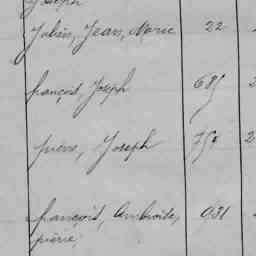 Joseph
Julien, Jean, Marie 22
françois, Joseph 685 2
pierre, Joseph 750 2
françois, Ambroise, 931
pierre,